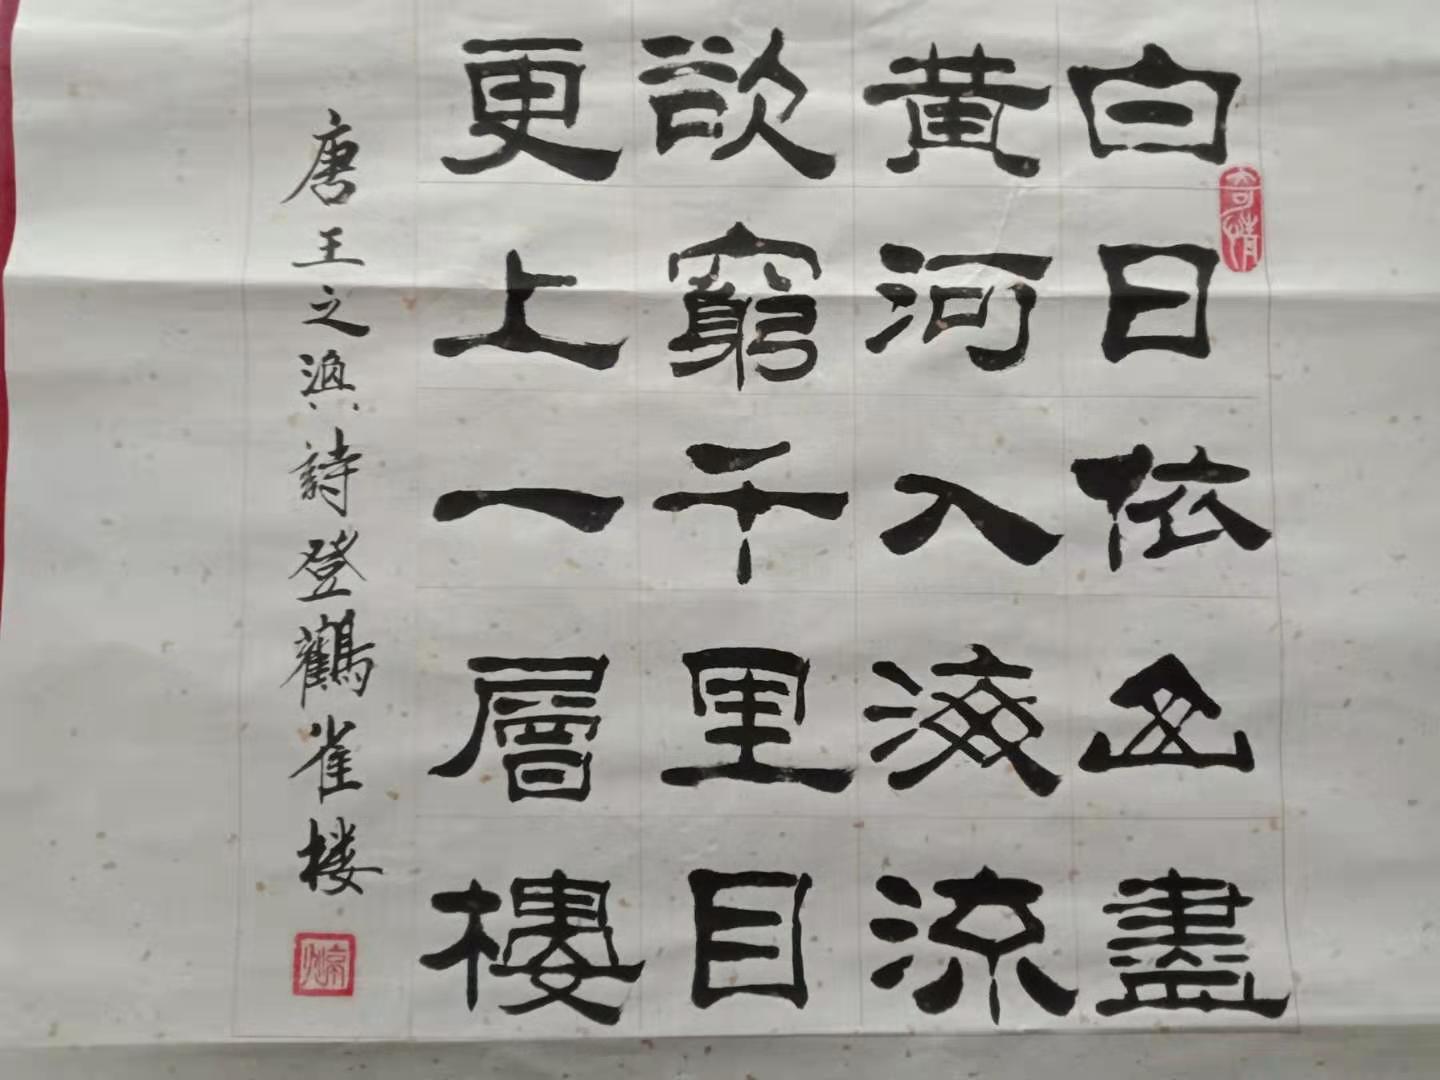 白日依山盡
黃河入海流
欲窮千里目
更上一層樓
唐王之渙詩登鸛雀楼